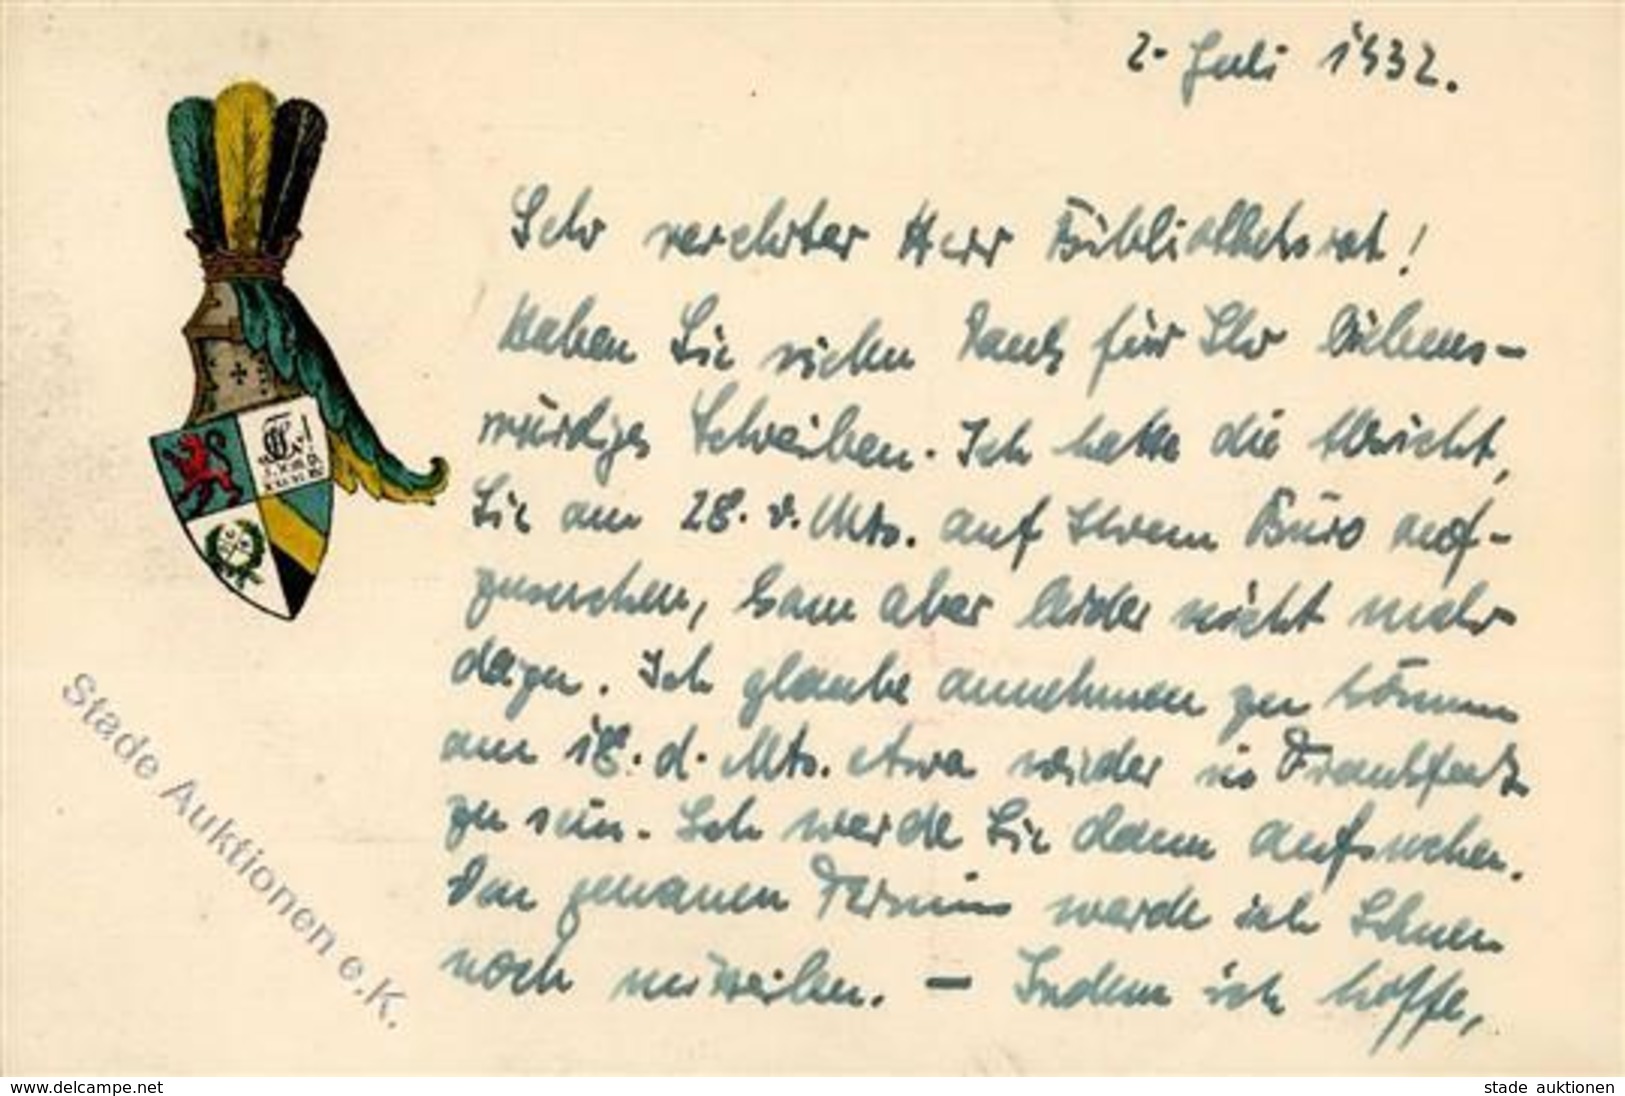 2. Juli 1932.
Sehr verehrter Herr Bibliotheksrat!
Haben Sie vielen Dank für Ihr liebens-
würdiges Schreiben. Ich hatte die Absicht,
Sie am 28. v. Mts. auf Ihrem Büro auf-
zusuchen, kam aber leider nicht mehr
dazu. Ich glaube annehmen zu können
am 18. d. Mts. etwa wieder in Frankfurt
zu sein. Ich werde Sie dann aufsuchen.
Den genauen Termin werde ich Ihnen
noch mitteilen. — Indem ich hoffe,
Stade Auktionen e.K.
www.delcampe.net
stade auktionen